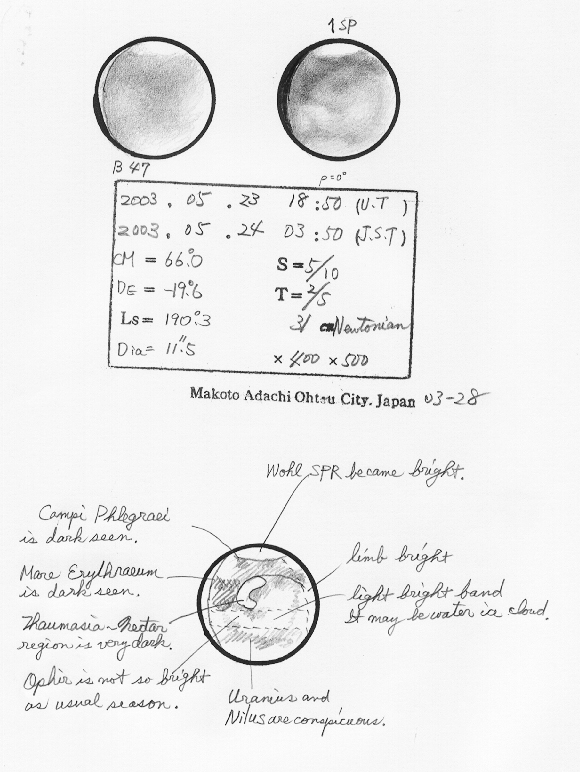 1 SP
B 47
P=0°
2003 . 05 . 23 18:50 (U.T )
2003 . 05 . 24 03:50 (J.S.T)
CM = 66°.0 S=5/10
DE = -19°.6 T=2/5
Ls= 190°.3 31 cm Newtonian
Dia= 11".5 ×400 ×500
Makoto Adachi Ohtsu City. Japan 03-28
Wohl SPR became bright.
Campi Phlegraei
is dark seen.
limb bright
Mare Erythraeum
is dark seen.
light bright band
It may be water ice cloud.
Thaumasia~Nectar
region is very dark.
Ophir is not so bright
as usual season.
Uranius and
Nilus are conspicuous.